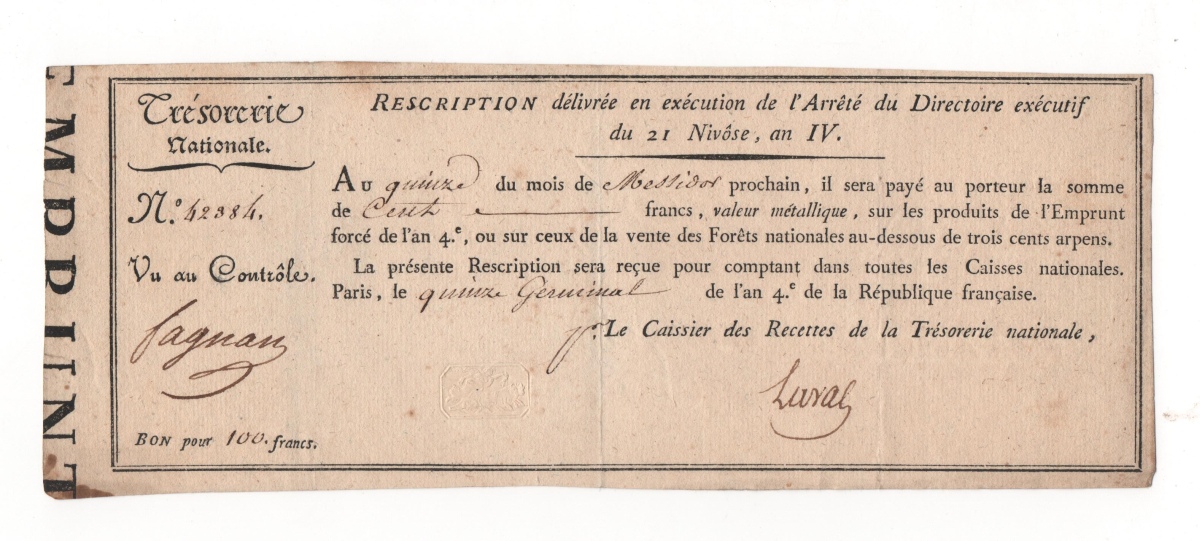 EMPRUNT
Trésorerie
Nationale.
N.º 42384.
Vu au Contrôle.
Sagnan
BON pour 100. francs.
RESCRIPTION délivrée en exécution de l'Arrêté du Directoire exécutif
du 21 Nivôse, an IV.
AU quinze du mois de Messidor prochain, il sera payé au porteur la somme
de Cent francs, valeur métallique, sur les produits de l'Emprunt
forcé de l'an 4.e, ou sur ceux de la vente des Forêts nationales au-dessous de trois cents arpens.
La présente Rescription sera reçue pour comptant dans toutes les Caisses nationales.
Paris, le quinze Germinal de l'an 4.e de la République française.
pr. Le Caissier des Recettes de la Trésorerie nationale,